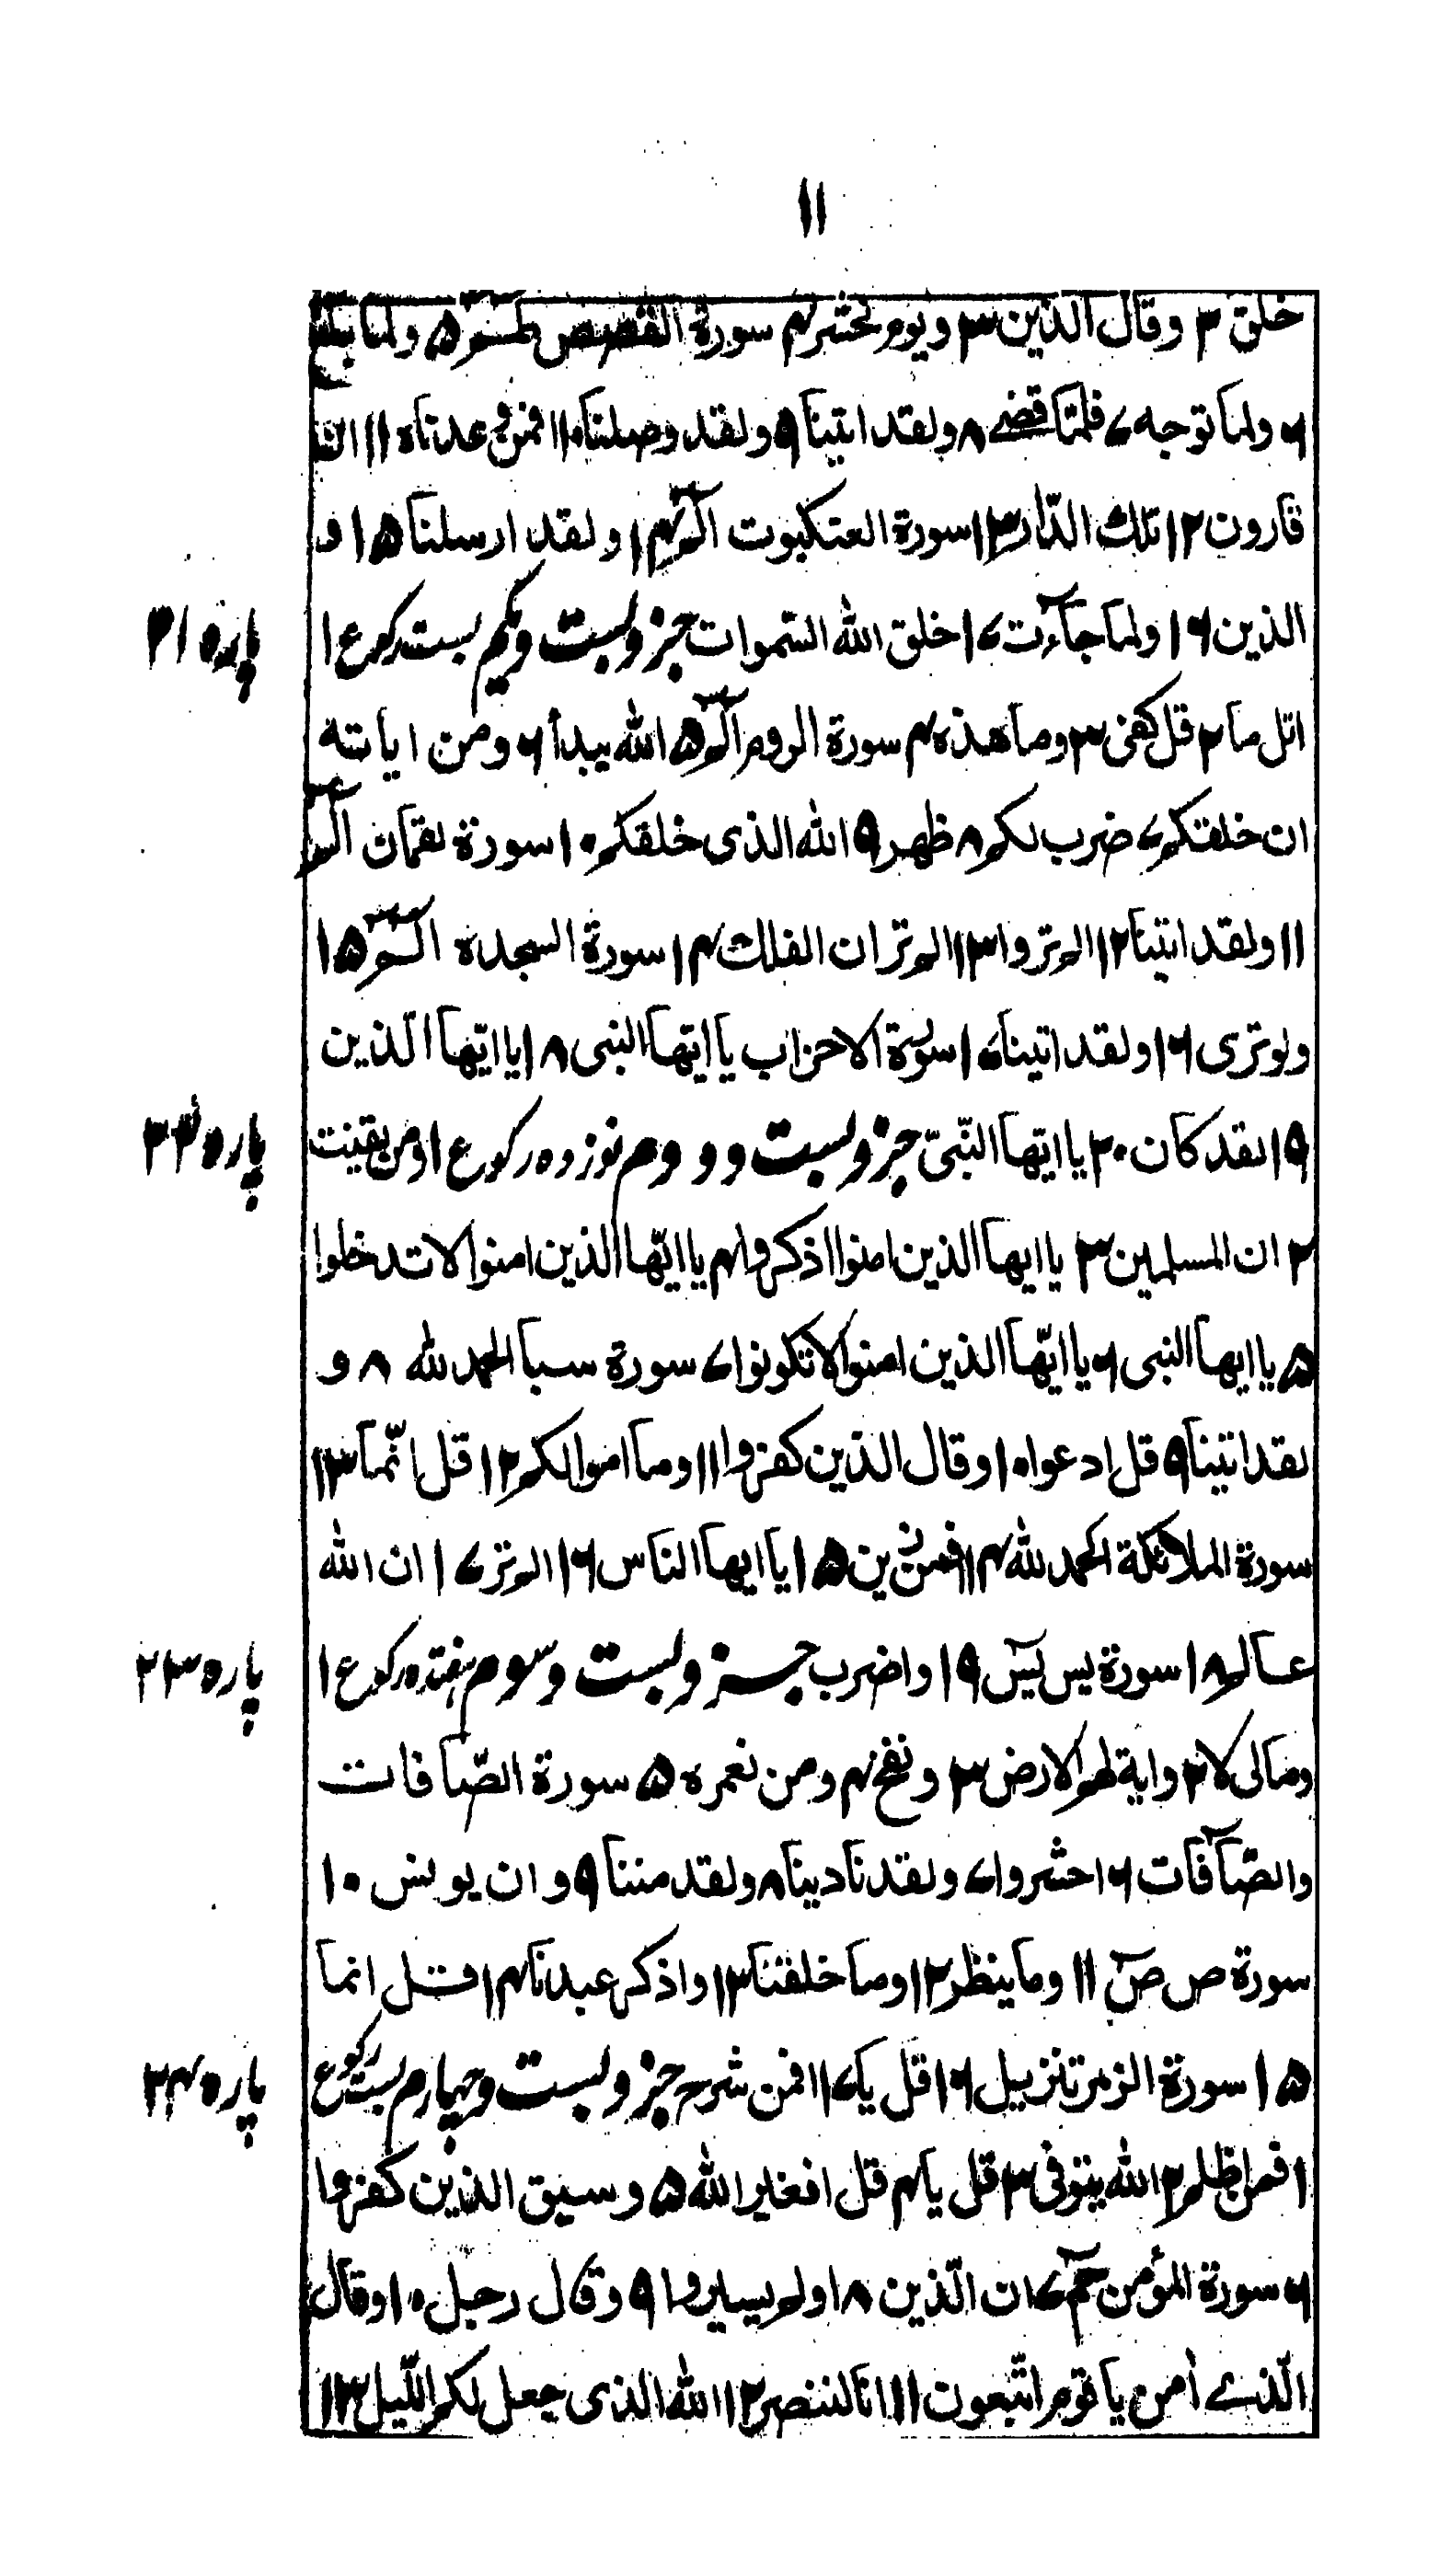 ۱۱
خلق ۲ وقال الذین ۳ ویوم نحشر ۴ سورة القصص طسم ۵ ولما بلغ
۶ ولما توجه ۷ فلما قضے ۸ ولقد اتینا ۹ ولقد وصلنا ۱۰ افمن وعدناه ۱۱ ان
قارون ۱۲ تلك الدّار ۱۳ سورة العنکبوت الم ۱۴ ولقد ارسلنا ۱۵ و
الذین ۱۶ ولما جآءت ۱۷ خلق الله السّموات جزو بست ویکم بست رکوع ۱
پاره ۲۱
اتل ما ۲ قل کفی ۳ وما هذه ۴ سورة الروم الٓم ۵ الله یبدأ ۶ ومن ایاته
ان خلقتکم ۷ ضرب لکم ۸ ظهر ۹ الله الذی خلقکم ۱۰ سورة لقمان الٓم
۱۱ ولقد اتینا ۱۲ الم تروا ۱۳ الم تر ان الفلك ۱۴ سورة السجده الٓم ۱۵
ولوتری ۱۶ ولقد اتینا ۱۷ سورة الاحزاب یا ایها النبی ۱۸ یا ایّها الّذین
۱۹ لقد کان ۲۰ یا ایّها النّبیّ جزو بست ودوم نوزده رکوع ۱ ومن یقنت
پاره ۲۲
۲ ان المسلمین ۳ یا ایها الذین امنوا اذکروا ۴ یا ایّها الذین امنوا لا تدخلوا
۵ یا ایها النبی ۶ یا ایّها الذین امنوا لا تکونوا ۷ سورة سبا الحمد لله ۸ و
لقد اتینا ۹ قل ادعوا ۱۰ وقال الذین کفروا ۱۱ وما اموالکم ۱۲ قل انّما ۱۳
سورة الملائکة الحمد لله ۱۴ افمن زین ۱۵ یا ایها الناس ۱۶ الم تر ۱۷ ان الله
عالم ۱۸ سورة یس یٓس ۱۹ واضرب جزو بست وسوم هفتده رکوع ۱
پاره ۲۳
ومالی لا ۲ وایة لهم الارض ۳ ونفخ ۴ ومن نعمره ۵ سورة الصّافات
والصّآفات ۶ احشروا ۷ ولقد نادینا ۸ ولقد مننا ۹ وان یونس ۱۰
سورة ص صٓ ۱۱ وما ینظر ۱۲ وما خلقنا ۱۳ واذکر عبدنا ۱۴ قل انما
۱۵ سورة الزمر تنزیل ۱۶ قل یا ۱۷ افمن شرح جزو بست وچهارم بست رکوع
پاره ۲۴
۱ فمن اظلم ۲ الله یتوفی ۳ قل یا ۴ قل افغیر الله ۵ وسیق الذین کفروا
۶ سورة المؤمن حٰمٓ ۷ ان الّذین ۸ اولم یسیروا ۹ وقال رجل ۱۰ وقال
الّذے اٰمن یا قوم اتّبعون ۱۱ انا لننصر ۱۲ الله الذی جعل لکم اللّیل ۱۳